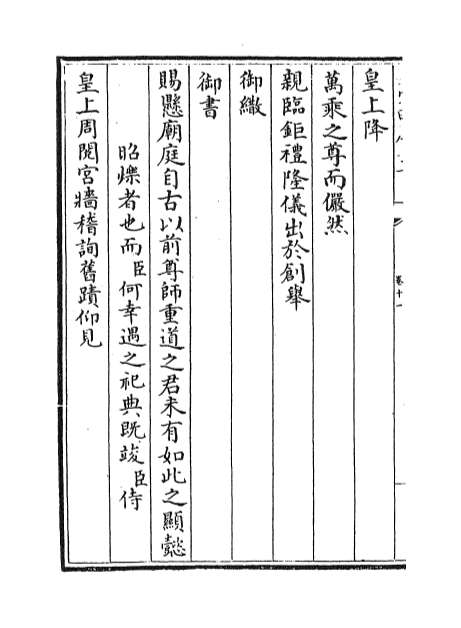 皇上降
萬乘之尊而儼然
親臨鉅禮隆儀出於創舉
御繖
御書
賜懸廟庭自古以前尊師重道之君未有如此之顯懿
昭爍者也而臣何幸遇之祀典既竣臣侍
皇上周閲宮牆稽詢舊蹟仰見
卷十一